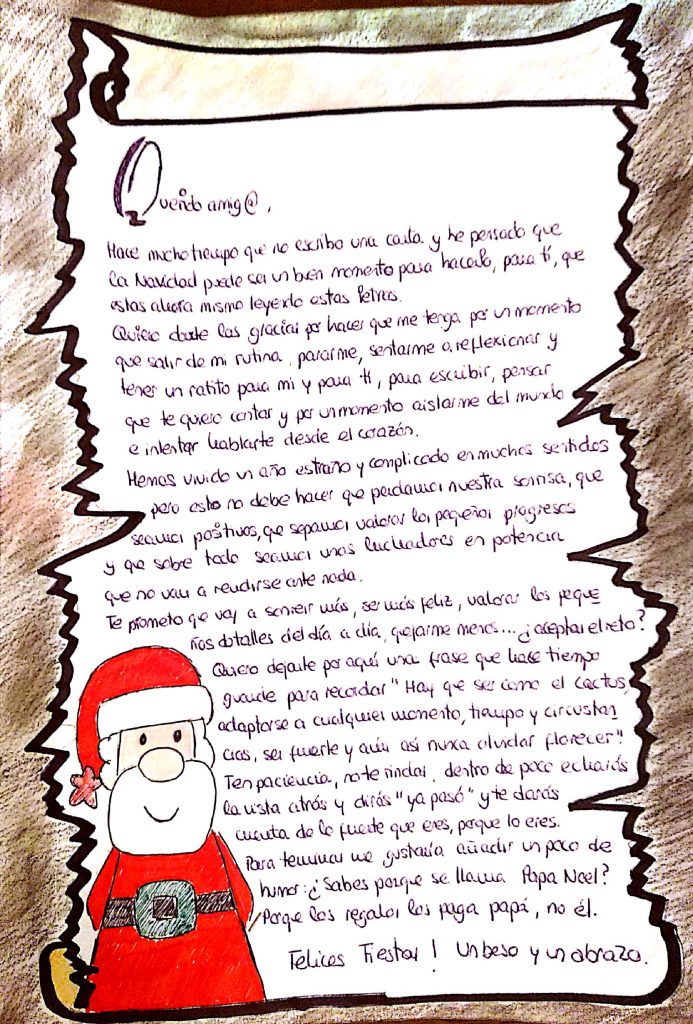 Querido amig@,
Hace mucho tiempo que no escribo una carta y he pensado que
la Navidad puede ser un buen momento para hacerlo, para tí, que
estas ahora mismo leyendo estas letras.
Quiero darte las gracias por hacer que me tenga por un momento
que salir de mi rutina, pararme, sentarme a reflexionar y
tener un ratito para mi y para ti, para escribir, pensar
que te quiero contar y por un momento aislarme del mundo
e intentar hablarte desde el corazón.
Hemos vivido un año estraño y complicado en muchos sentidos
pero esto no debe hacer que perdamos nuestra sonrisa, que
seamos positivos, que sepamos valorar los pequeños progresos
y que sobre todo seamos unos luchadores en potencia
que no van a rendirse ante nada.
Te prometo que voy a sonreir más, ser más feliz, valorar los peque
ños detalles del día a día, quejarme menos... ¿aceptas el reto?
Quiero dejarte por aquí una frase que hace tiempo
guarde para recordar "Hay que ser como el cactus,
adaptarse a cualquier momento, tiempo y circustan
cias, ser fuerte y aún así nunca olvidar florecer".
Ten paciencia, no te rindas, dentro de poco echarás
la vista atrás y dirás "ya pasó" y te darás
cuenta de lo fuerte que eres, porque lo eres.
Para terminar me gustaría añadir un poco de
humor: ¿Sabes porque se llama Papa Noel?
Porque los regalos los paga papá, no él.
Felices Fiestas! Un beso y un abrazo.